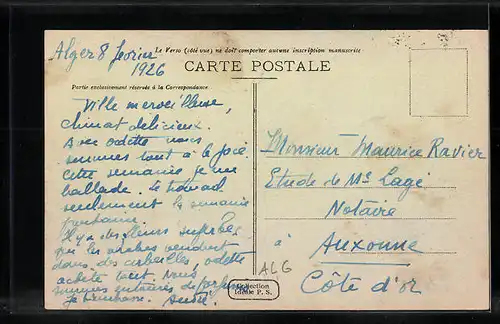 Le Verso (côté vue) ne doit comporter aucune inscription manuscrite
CARTE POSTALE
Partie exclusivement réservée à la Correspondance.
Alger 8 fevrier
1926
Ville merveilleuse,
climat délicieux.
Avec odette nous
sommes tout à la joie.
Cette semaine je me
ballade. Le travail
seulement la semaine
prochaine.
Il y a des fleurs superbes
que les arabes vendent
dans des corbeilles, odette
achète tout. Nous
sommes entourés de parfums
je t'embrasse. André.
Monsieur Maurice Ravier
Etude de Me Lagé
Notaire
à
Auxonne
Côte d'or
ALG
Collection
Idéale P. S.